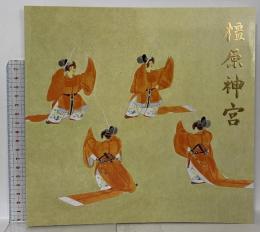 橿原神宮